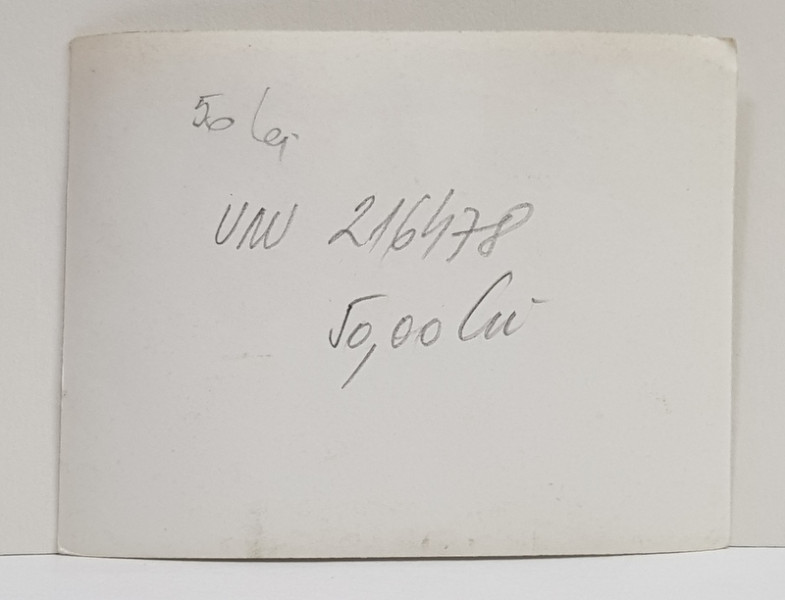 50 lei
VNV 216478
50,00 lei